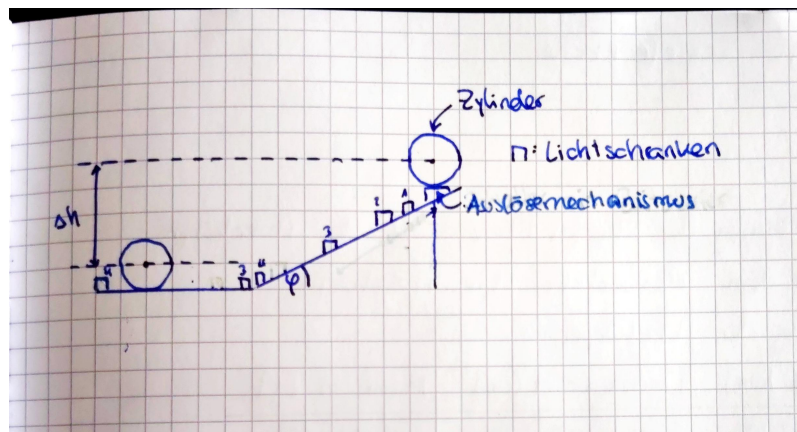 Zylinder
⊓: Lichtschranken
1
2
Auslösemechanismus
Δh
3
4
3
4
φ